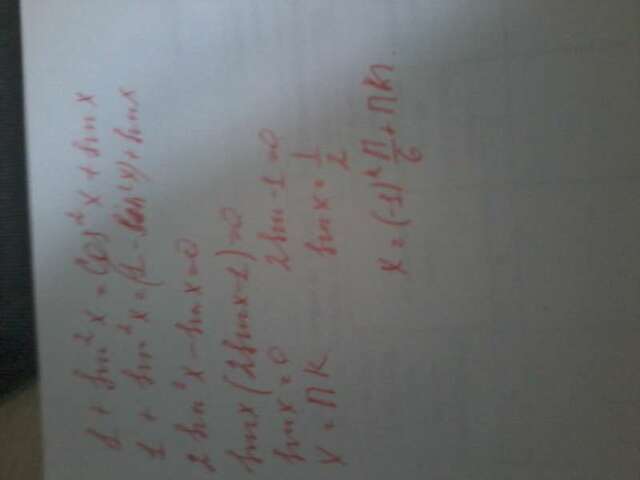 1 + sin²x = cos²x + sinx
1 + sin²x = (1 - sin²x) + sinx
2sin²x - sinx = 0
sinx(2sinx - 1) = 0
sinx = 0 2sin - 1 = 0
x = πk sinx = 1/2
x = (-1)ᵏ π/6 + πk